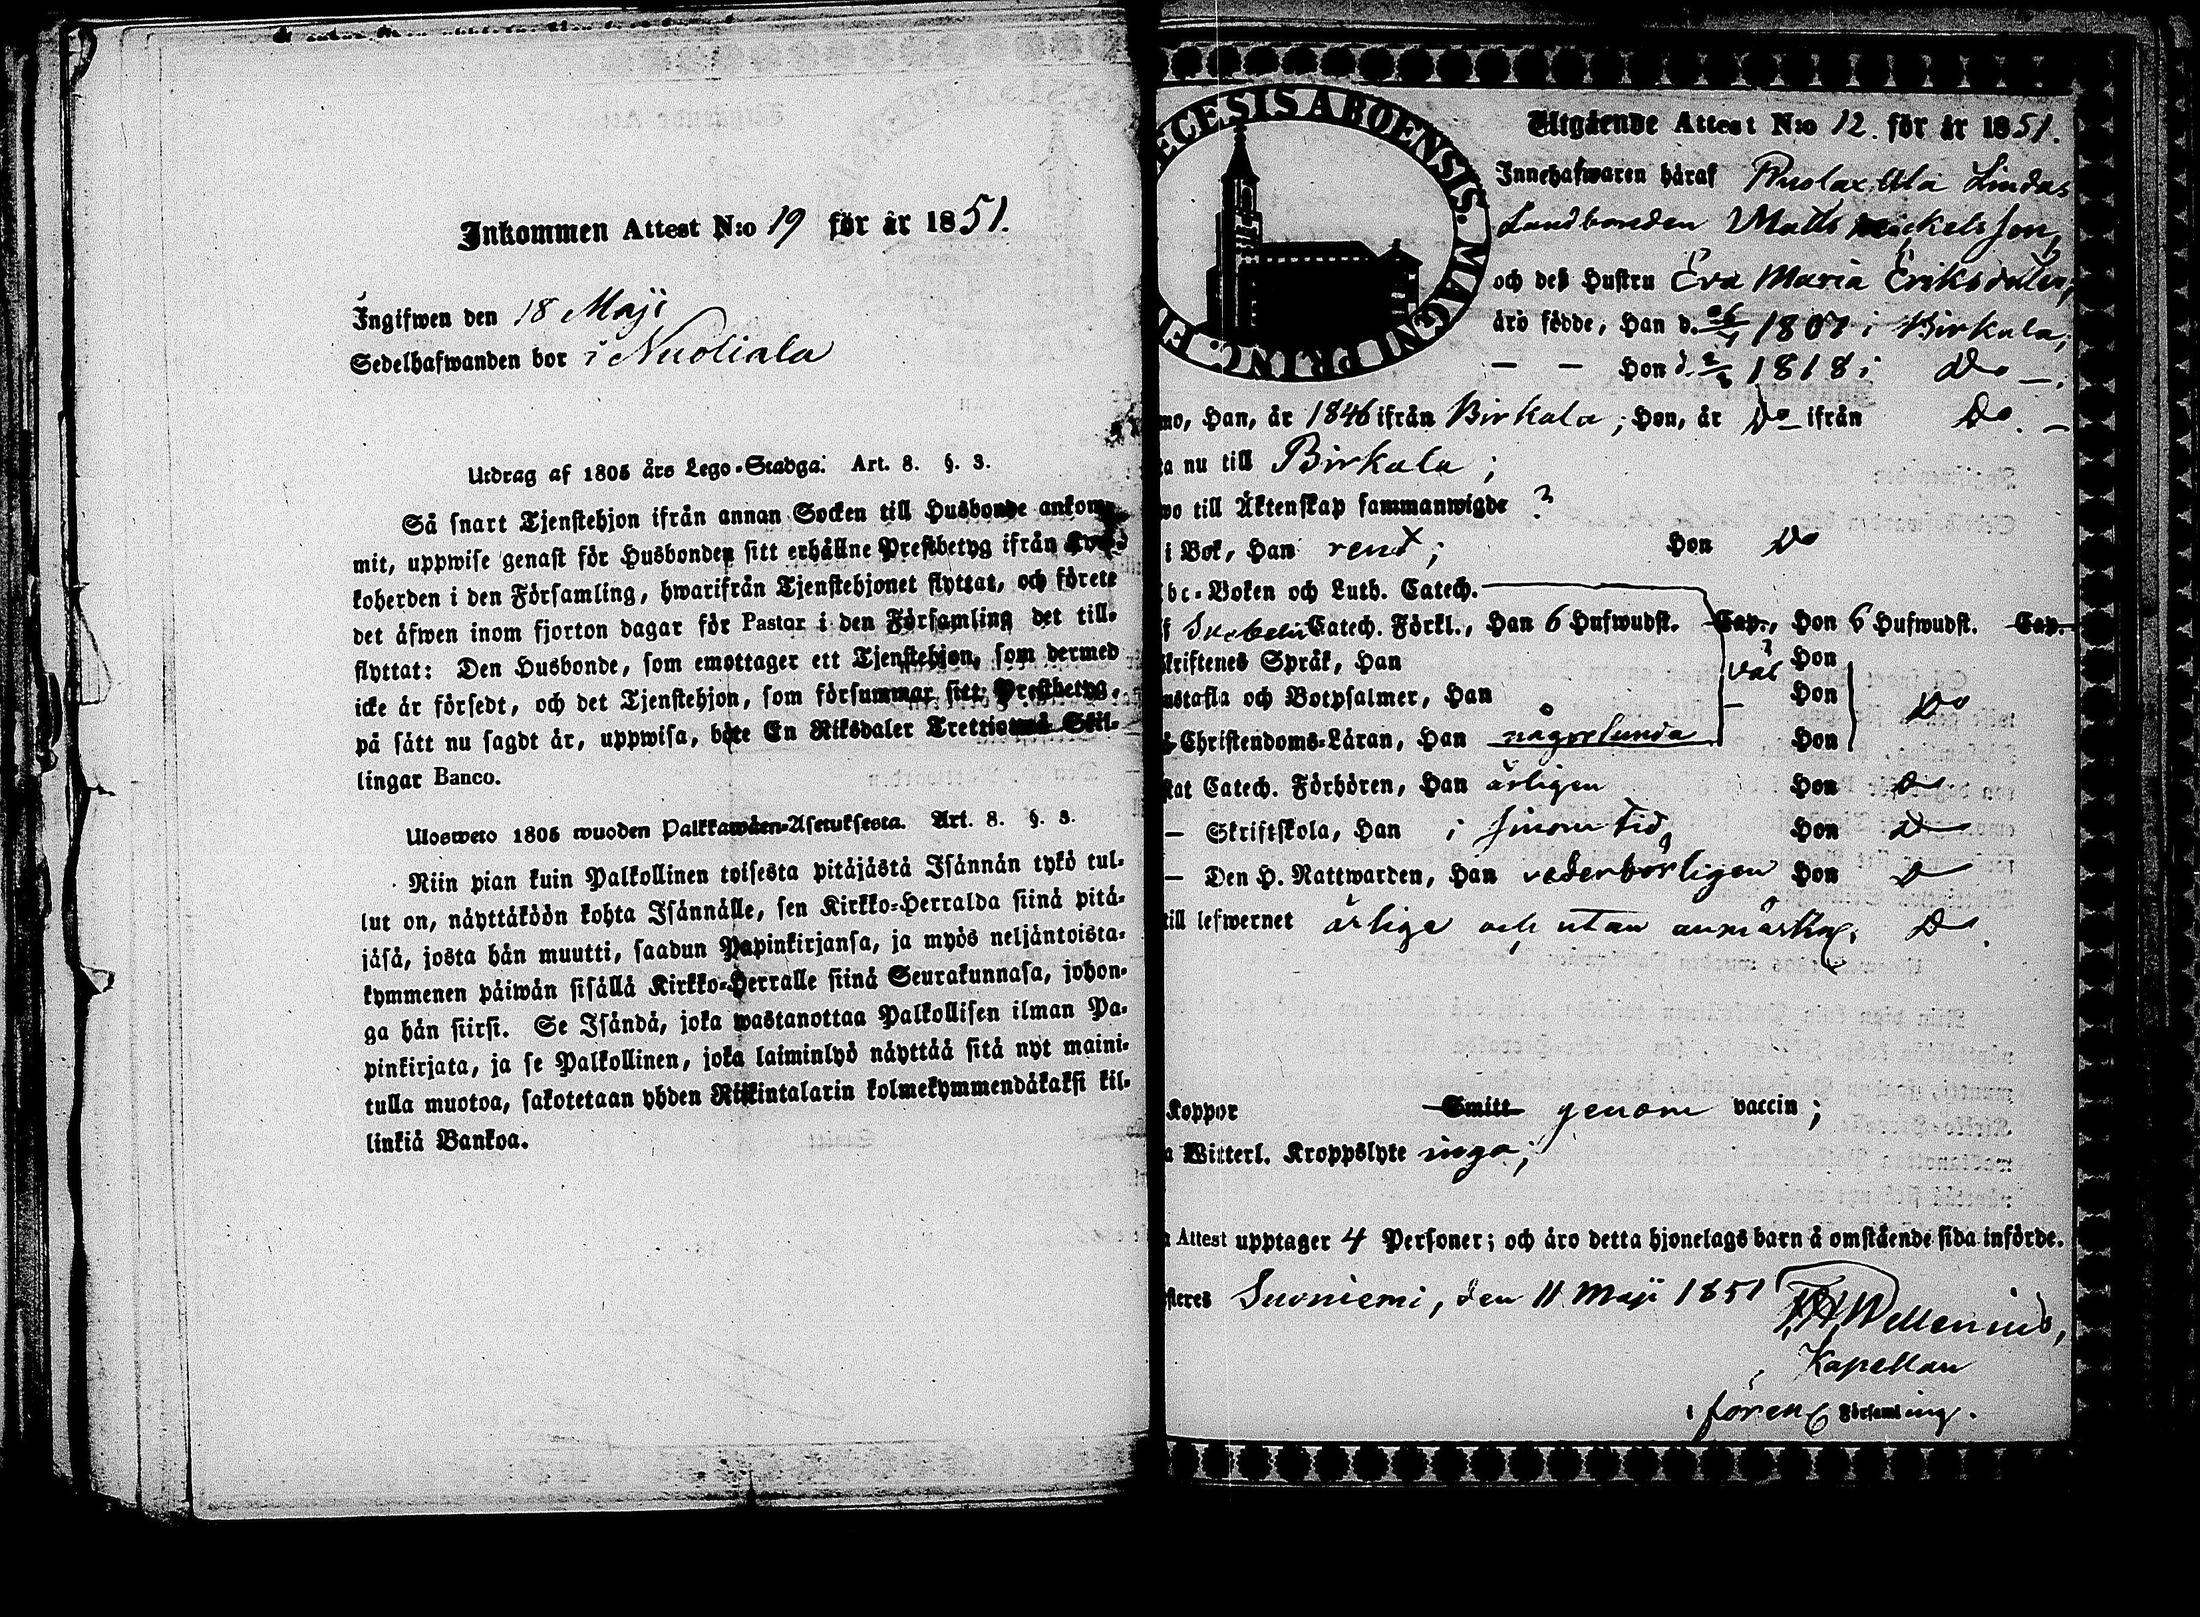 Inkommen Attest N:o 19 för år 1851.
Ingifwen den 18 Maji
Sedelhafwanden bor i Nuoliala
Utdrag af 1805 års Lego-Stadga. Art. 8. §. 3.
Så snart Tjenstehjon ifrån annan Socken till Husbonde ankom-
mit, uppwise genast för Husbonden sitt erhållne Prestbetyg ifrån
koherden i den Församling, hwarifrån Tjenstehjonet flyttat, och förete
det äfwen inom fjorton dagar för Pastor i den Församling det till-
flyttat: Den Husbonde, som emottager ett Tjenstehjon, som dermed
icke är försedt, och det Tjenstehjon, som försummar sitt Prestbetyg,
på sätt nu sagdt är, uppwisa, böte En Riksdaler Trettiotwå Skil-
lingar Banco.
Ulosweto 1805 wuoden Palkkawäen-Asetuksesta. Art. 8. §. 3.
Niin pian kuin Palkollinen toisesta pitäjästä Isännän tykö tul-
lut on, näyttäköön kohta Isännälle, sen Kirkko-Herralda siinä pitä-
jäsä, josta hän muutti, saadun Papinkirjansa, ja myös neljäntoista-
kymmenen päiwän sisällä Kirkko-Herralle siinä Seurakunnasa, johon-
ga hän siirsi. Se Isändä, joka wastanottaa Palkollisen ilman Pa-
pinkirjata, ja se Palkollinen, joka laiminlyö näyttää sitä nyt maini-
tulla muotoa, sakotetaan yhden Riikintalarin kolmekymmendäkaksi kil-
linkiä Bankoa.
ECESIS ABOENSIS. MAGNI PRINC.
Utgående Attest N:o 12. för år 1851.
Innehafwaren häraf Ala Lindas
Landbonden Matts Michelsson,
och deß Hustru Eva Maria Eriksdotter,
äro födde, Han d. 1807 i Birkala,
— — Hon d. 1818 i Do —.
mo, Han, år 1846 ifrån Birkala; Hon, år Do ifrån Do. —
ta nu till Birkala;
wo till Äktenskap sammanwigde ?
i Bok, Han rent; Hon Do
bc-Boken och Luth. Catech.
f Svebelii Catech. Förkl., Han 6 Hufwudst. Cap., Hon 6 Hufwudst. Cap.
kriftenes Språk, Han väl Hon
ustafla och Botpsalmer, Han Hon Do
Christendoms-Läran, Han någorlunda Hon
stat Catech. Förhören, Han årligen Hon Do
— Skriftskola, Han i sinom tid, Hon Do
— Den H. Nattwarden, Han vederbörligen Hon Do
till lefwernet ärliga och utan anmärkn. Do.
Koppor Smitt genom vaccin;
a Witterl. Kroppslyte inga;
n Attest upptager 4 Personer; och äro detta hjonelags barn å omstående sida införde.
steres Suoniemi, den 11 Maji 1851
Wellenius,
Kapellan
i fören. Församling.